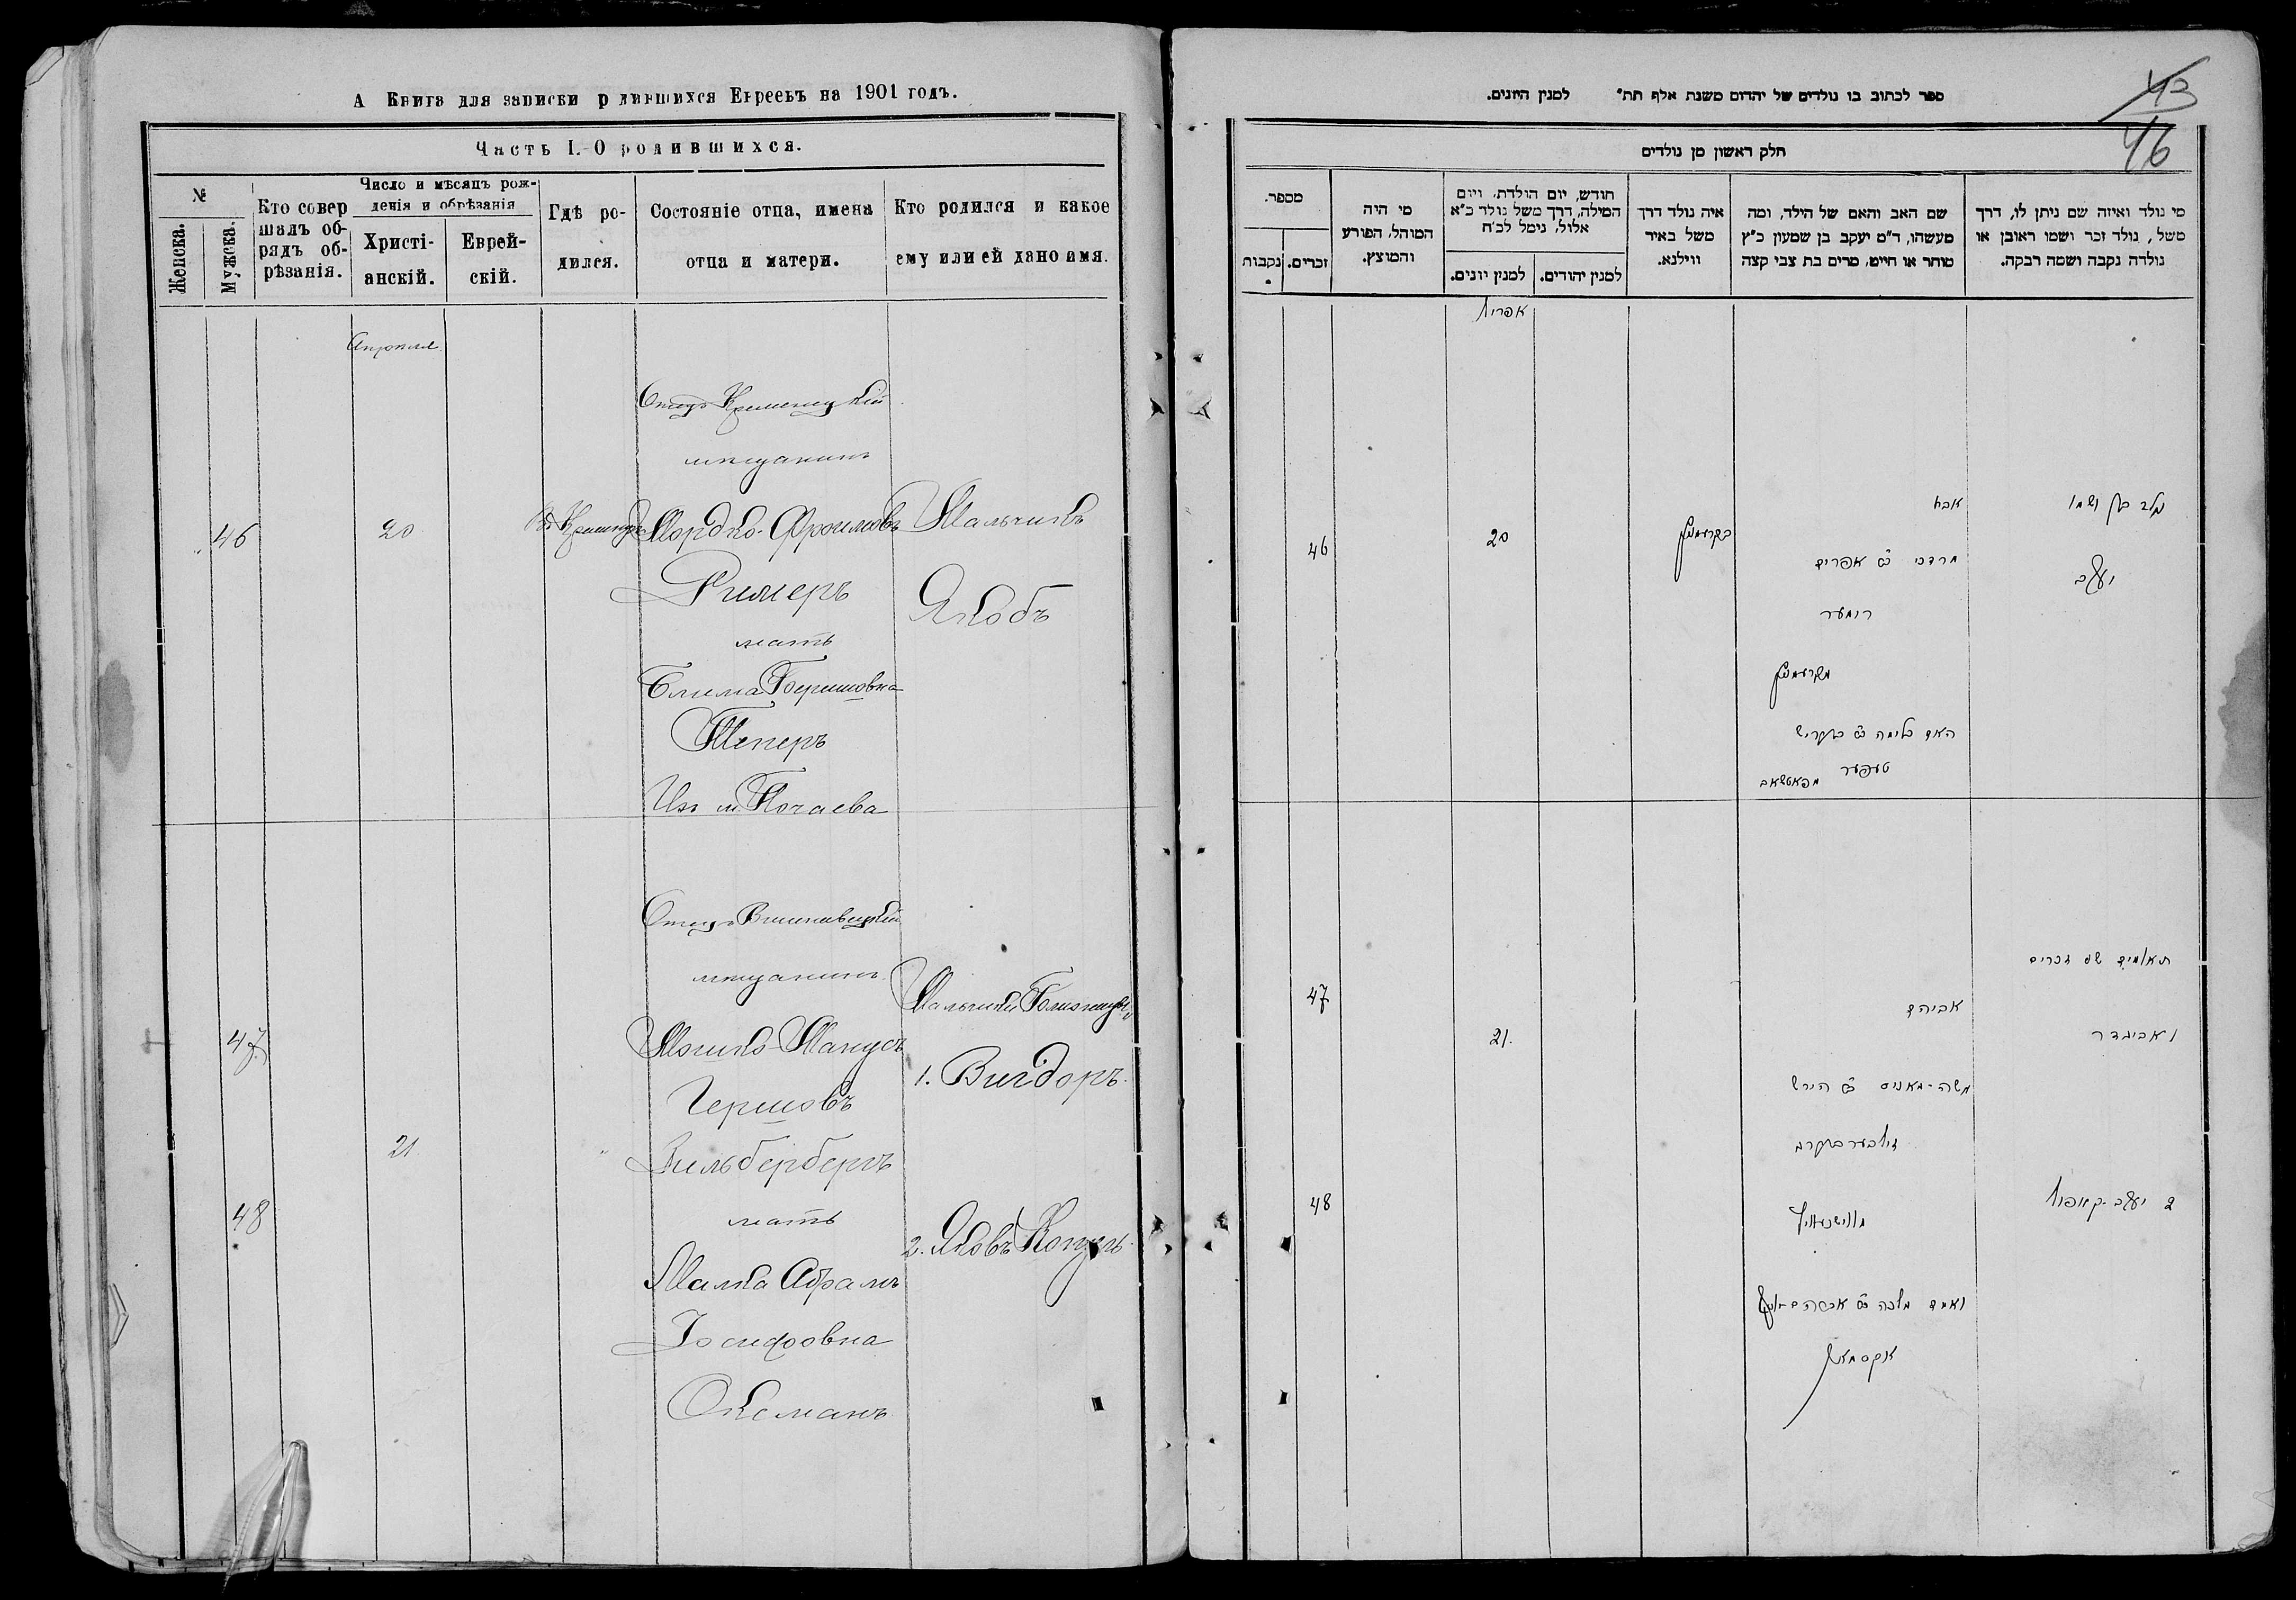 А Книга для записки р дившихся Евреевъ на 1901 годъ.
Часть I. О родившихся.
№
Женска.
Мужска.
Кто совер
шалъ об-
рядъ об-
рѣзанія.
Число и мѣсяцъ рож-
денія и обрѣзанія
Христі-
анскій.
Еврей-
скій.
Гдѣ ро-
дился.
Состояніе отца, имена
отца и матери.
Кто родился и какое
ему или ей дано имя.
Апрѣля
46
20
Отецъ Кременецкій
мѣщанинъ
Мордко-Фроимовъ
Ример​ъ
мать
Блима Беришовна
Теперъ
Изъ м. Почаева
Мальчикъ
Якобъ
47
48
21
Отецъ Вишневецкій
мѣщанинъ
Мошко-Манусъ
Гершовъ
Зильбербергъ
мать
Малка Абрамъ
Іосифовна
Оксманъ
Мальчики Близнецы
1. Вигдоръ.
2. Яковъ Копель
43
46
ספר לכתוב בו נולדים של יהדים משנת אלף תת" למנין היונים.
חלק ראשון מן נולדים
מספר.
נקבות
זכרים.
מי היה
המוהל, הפורע
והמוצץ.
חודש, יום הולדת, ויום
המילה, דרך משל נולד כ"א
אלול, נימל לכ"ח
למנין יונים.
למנין יהודים.
איה נולד דרך
משל באיר
ווילנא.
שם האב והאם של הילד, ומה
מעשהו, ד"מ יעקב בן שמעון כ"ץ
סוחר או חייט, מרים בת צבי קצה
מי נולד ואיזה שם ניתן לו, דרך
משל, נולד זכר ושמו ראובן או
נולדה נקבה ושמה רבקה.
אפריל
46
20
בקרעמניץ
אבא
מרדכי ב"ר אפרים
רימער
מקרעמניץ
האם בלימה ב"ר בעריש
טעפער
מפאטשאב
נולד בן ושמו
יעקב
47
21.
48
אביהם
משה-מאניס ב"ר הירש
זילבערבערג
מווישניוויץ
ואמם מלכה ב"ר אברהם-יוסף
אקסמאן
תאומים שני זכרים
1 אביגדר
2 יעקב-קאפיל